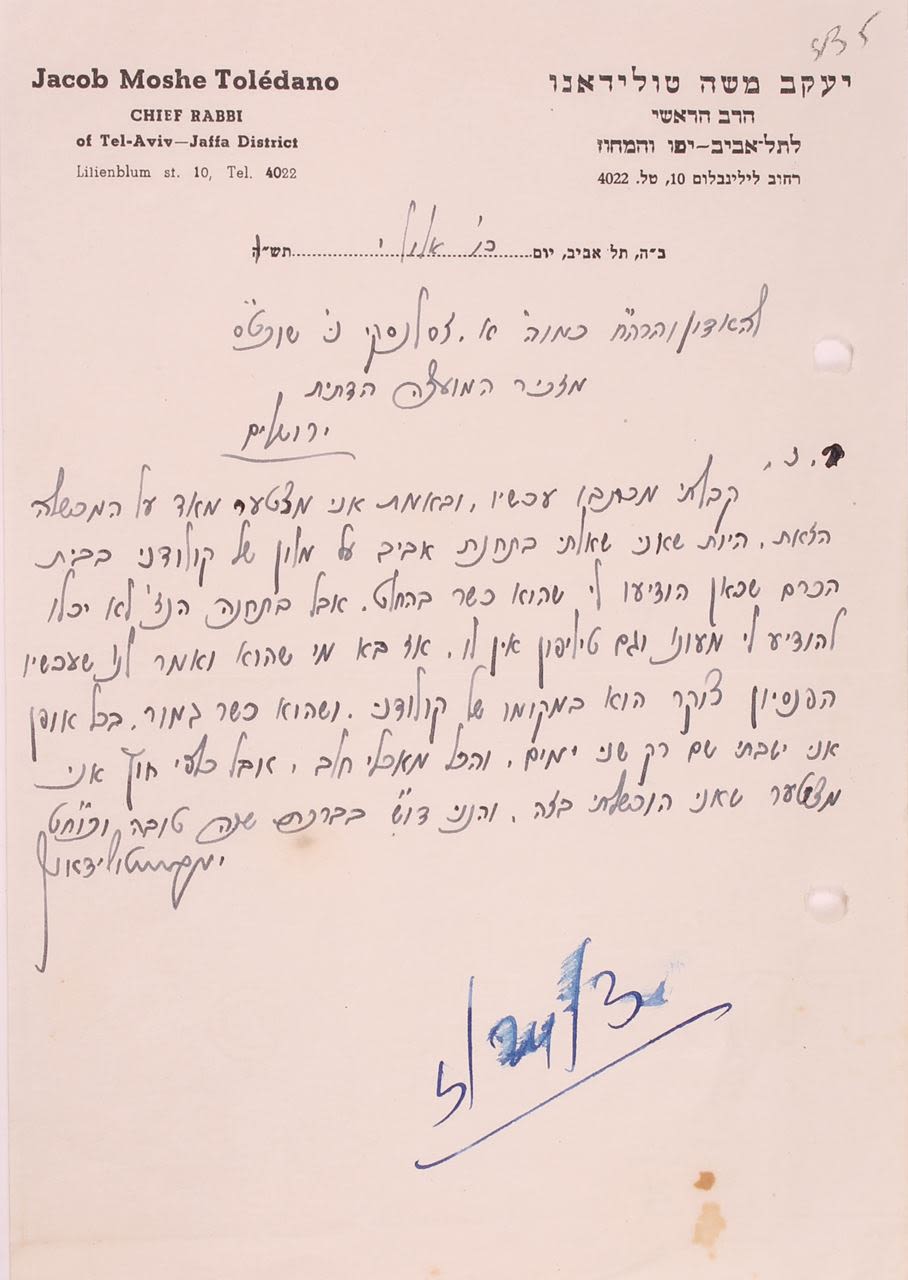 Jacob Moshe Tolédano
CHIEF RABBI
of Tel-Aviv—Jaffa District
Lilienblum st. 10, Tel. 4022
יעקב משה טולידאנו
הרב הראשי
לתל-אביב-יפו והמחוז
רחוב לילינבלום 10, טל. 4022
ב"ה, תל אביב, יום כו' אלול תש"ו
להאדון והרה"ח כמוה' א. זסלנסקי ני' שוכט"ס
מזכיר המועצה הדתית
ירושלים
קבלתי מכתבו עכשיו, ובאמת אני מצטער מאד על המכשלה
הזאת, היות שאני שאלתי בתחנת אביב על מלון של קולודני בבית
הכרם שכאן הודיעו לי שהוא כשר בהחלט. אבל בתחנה הנז' לא יכלו
להודיע לי מעונו וגם טיליפון אין לו, אז בא מי שהוא ואמר לנו שעכשיו
הפנסיון צוקר הוא במקומו של קולודני, ושהוא כשר גמור. בכל אופן
אני ישבתי שם רק שני ימים, והכל מאכלי חלב, אבל כלפי חוץ אני
מצטער שאני הוכשלתי בזה, והנני דוש בברכת שנה טובה וכוחט
יעקב משה טולידאנו